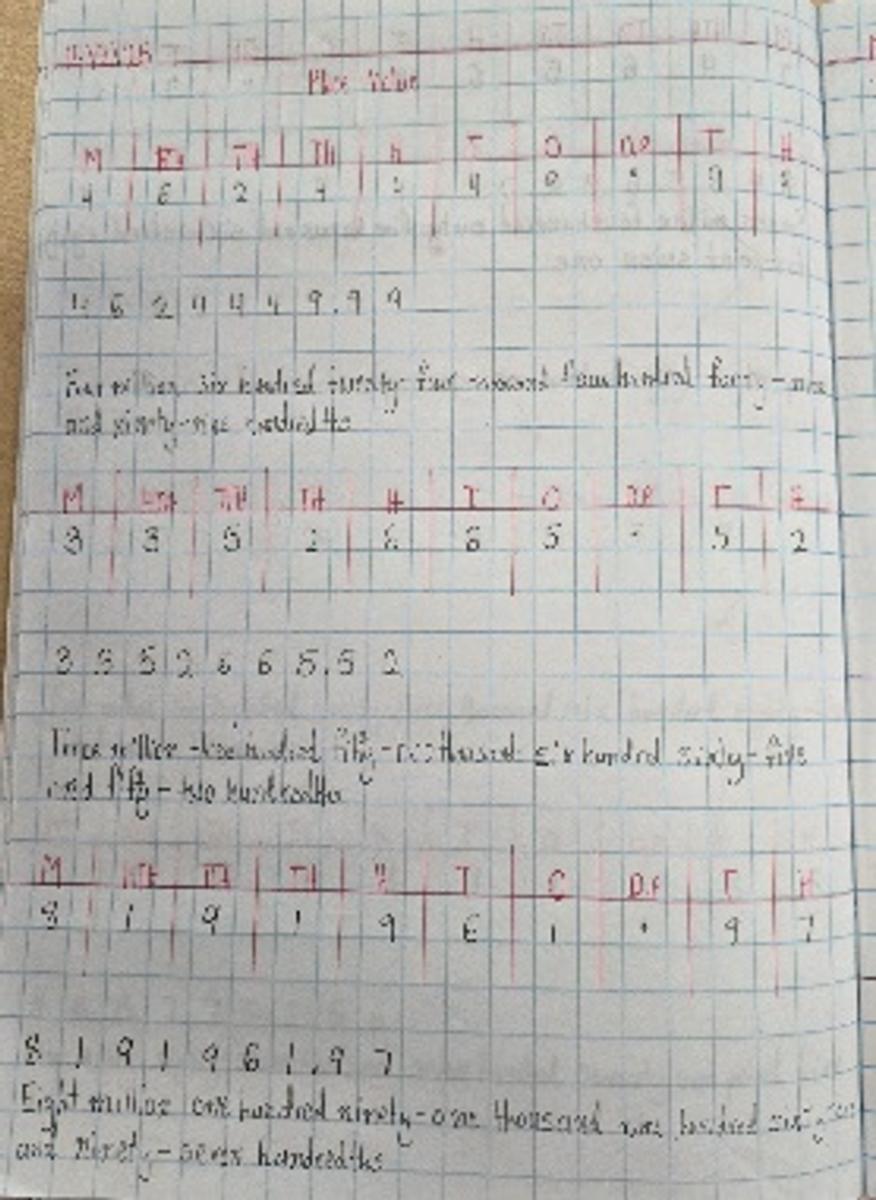 Place Value
M HTH TTH TH H T O D.P T H
4 6 2 4 4 9 . 9
4 6 2 4 4 4 9 . 9 9
Four million six hundred twenty four hundred forty-nine
and ninety-nine hundredths
M HTH TTH TH H T O D.P T H
3 3 5 2 6 6 5 . 5 2
3 3 5 2 6 6 5 . 5 2
Three million hundred fifty- thousand six hundred sixty-five
and fifty-two hundredths
M HTH TTH TH H T O D.P T H
8 1 9 1 9 6 1 . 9 7
8 1 9 1 9 6 1 . 9 7
Eight million one hundred ninety-one thousand nine hundred sixty
and ninety-seven hundredths